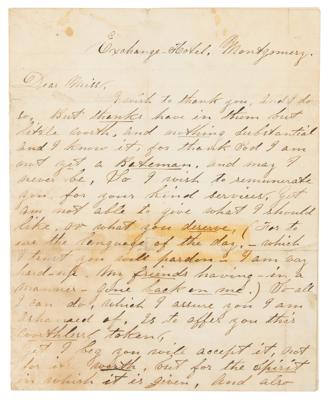 Exchange Hotel, Montgomery.
Dear Miss,
I wish to thank you, and I do
so, But thanks have in them but
little worth, and nothing substantial
and I know it, for thank God I am
not yet a Bateman, and may I
never be, So I wish to remunerate
you, for your kind services, yet
I am not able to give what I should
like, or what you deserve, (For to
use the language of the day, – which
I trust you will pardon – I am very
hard-up. My friends having – in a
manner – gone back on me.) So all
I can do, which I assure you I am
ashamed of, Is to offer you this
worthless token,
yet I beg you will accept it, not
for its worth, but for the spirit
in which it is given, and also